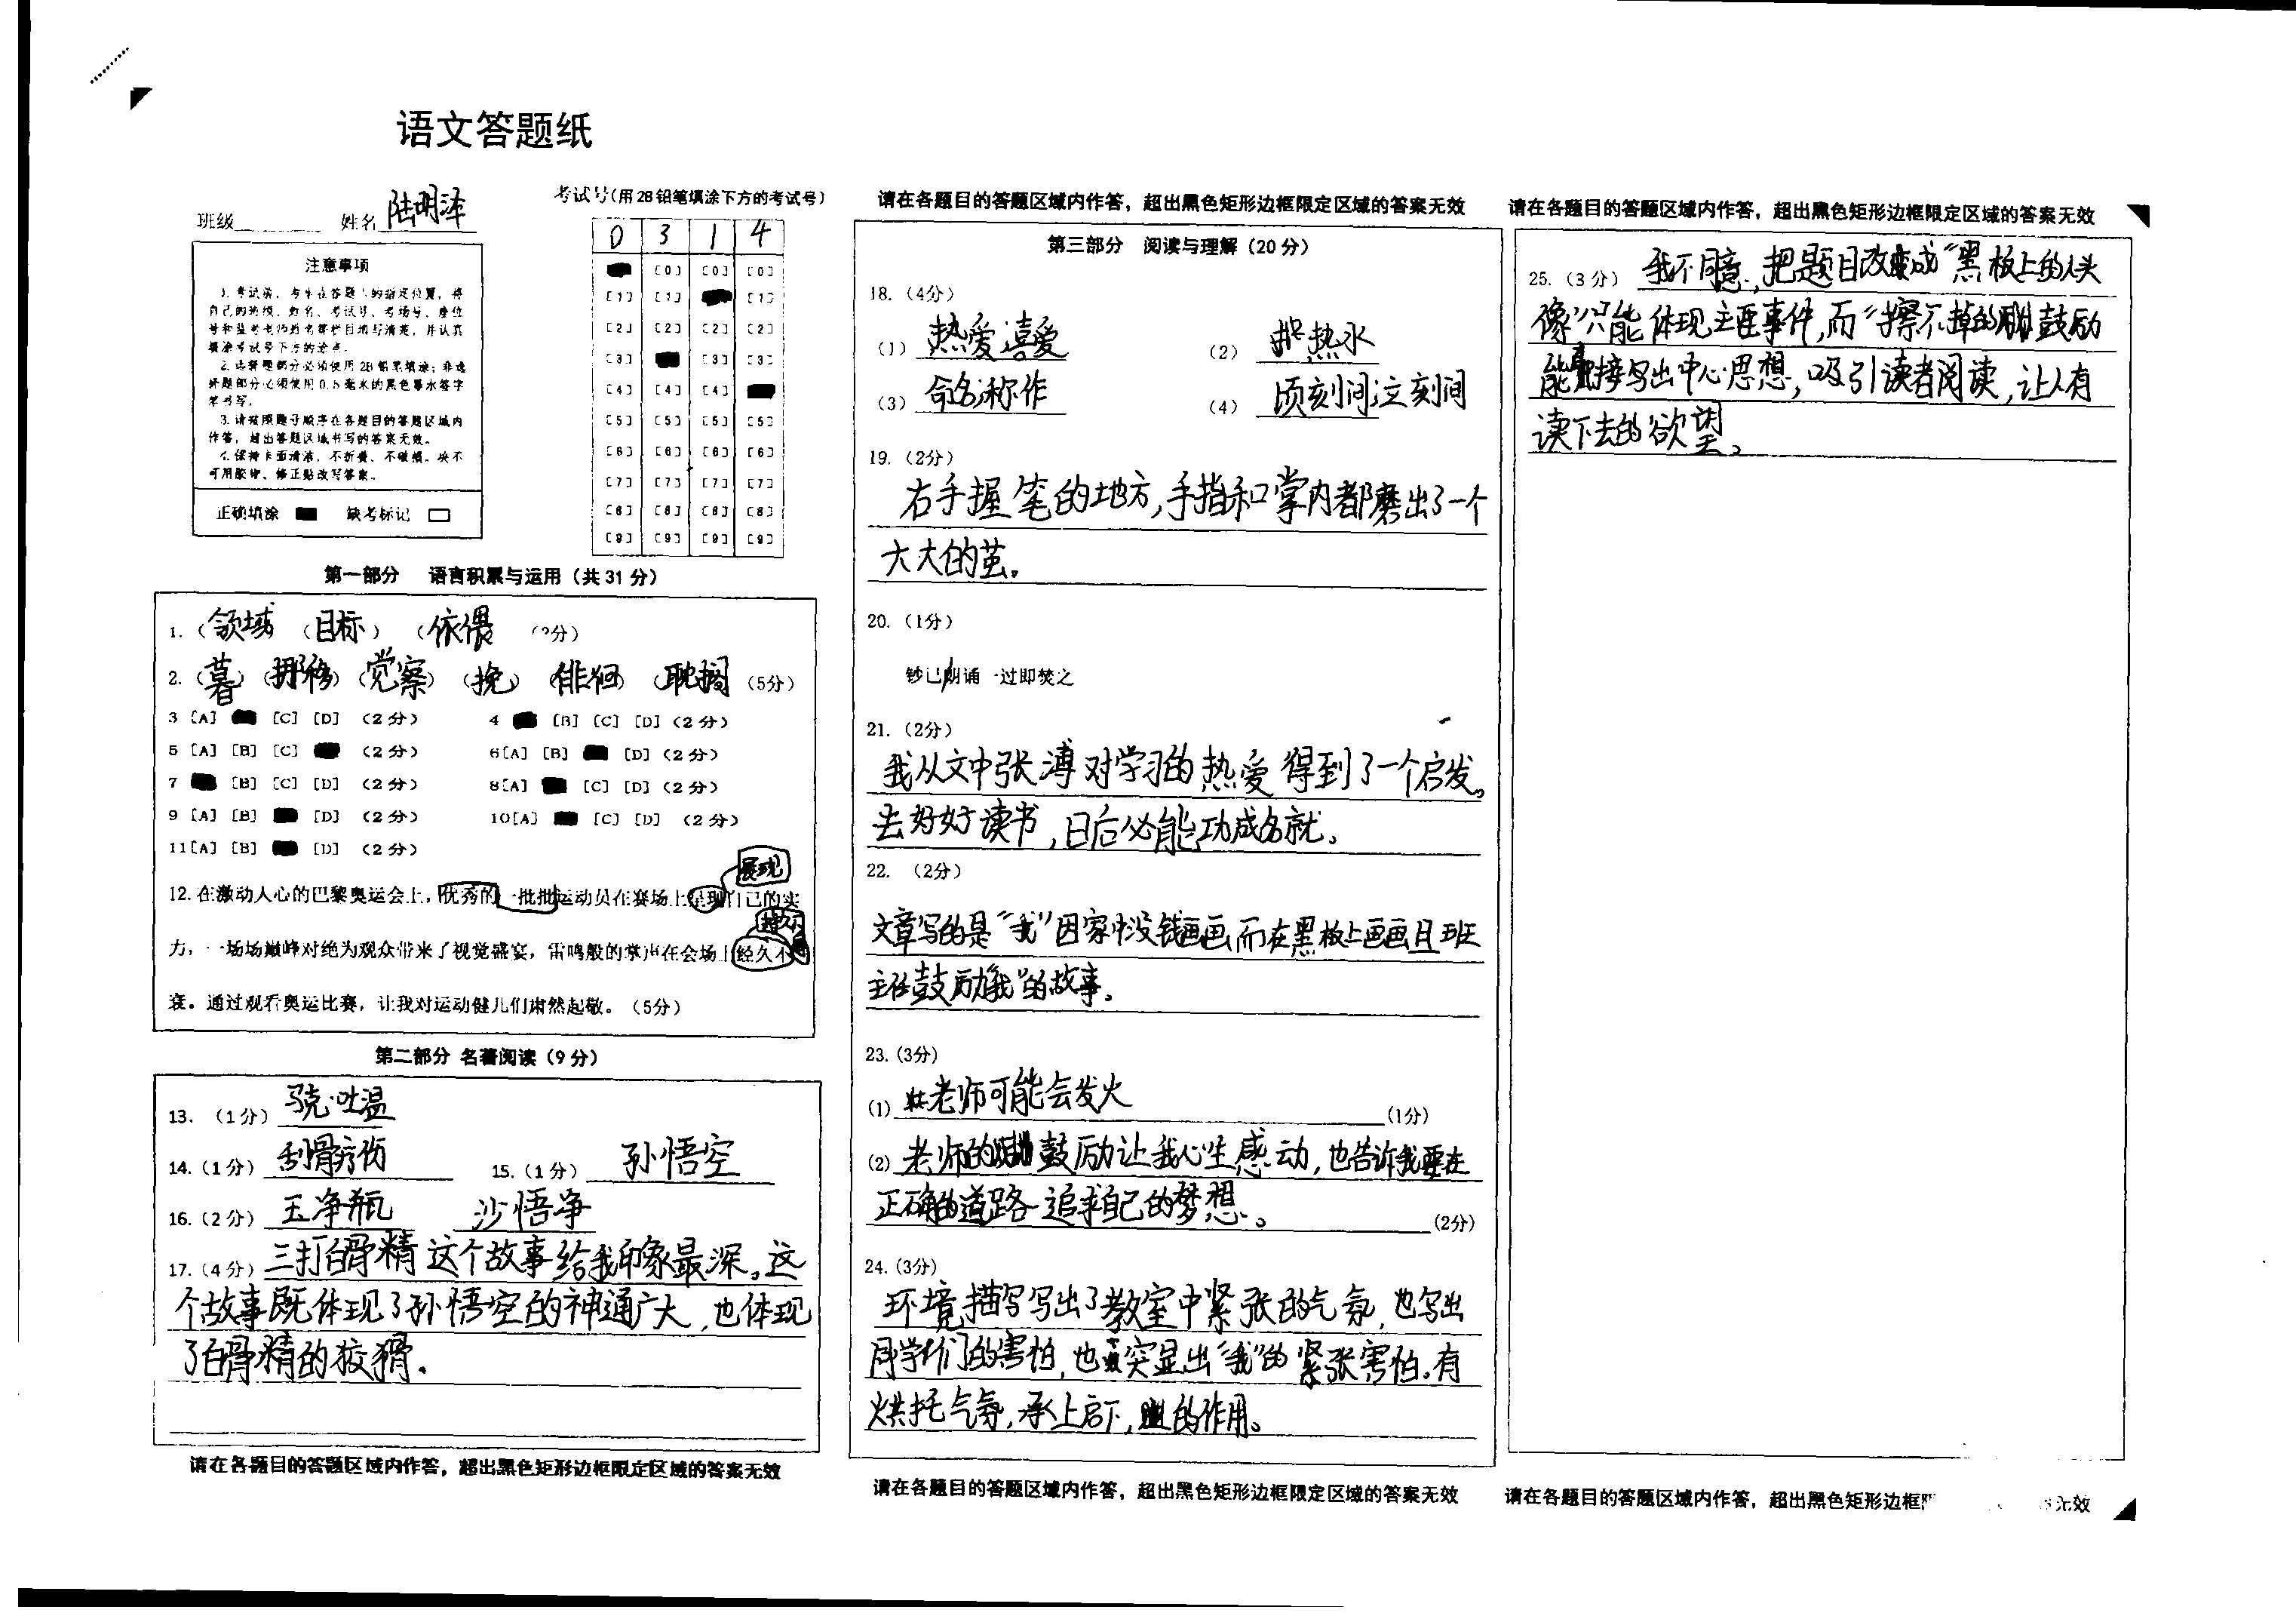 语文答题纸
班级 姓名 陆明泽
考试号(用2B铅笔填涂下方的考试号)
0 3 1 4
[0] [0] [0]
[1] [1] [1]
[2] [2] [2] [2]
[3] [3] [3]
[4] [4] [4]
[5] [5] [5] [5]
[6] [6] [6] [6]
[7] [7] [7] [7]
[8] [8] [8] [8]
[9] [9] [9] [9]
注意事项
1. 考试前，考生在答题纸的指定位置，将
自己的班级、姓名、考试号、考场号、座位
号和监考老师姓名等栏目填写清楚，并认真
填涂考试号下方的涂点。
2. 选择题部分必须使用2B铅笔填涂；非选
择题部分必须使用0.5毫米的黑色墨水签字
笔书写。
3. 请按照题号顺序在各题目的答题区域内
作答，超出答题区域书写的答案无效。
4. 保持卡面清洁，不折叠、不破损。决不
可用胶带、修正贴改写答案。
正确填涂 缺考标记
第一部分 语言积累与运用（共31分）
1.（领域）（目标）（依偎）（?分）
2.（暮）（挪移）（觉察）（挽）（徘徊）（耽搁）（5分）
3 [A] [C] [D] （2分） 4 [B] [C] [D]（2分）
5 [A] [B] [C] （2分） 6[A] [B] [D]（2分）
7 [B] [C] [D] （2分） 8[A] [C] [D]（2分）
9 [A] [B] [D] （2分） 10[A] [C] [D] （2分）
11[A] [B] [D] （2分）
展现
12.在激动人心的巴黎奥运会上，优秀的一批批运动员在赛场上呈现自己的实
力，一场场巅峰对绝为观众带来了视觉盛宴，雷鸣般的掌声在会场上经久不
衰。通过观看奥运比赛，让我对运动健儿们肃然起敬。（5分）
第二部分 名著阅读（9分）
13. （1分） 骁吐温
14.（1分） 刮骨疗伤 15.（1分） 孙悟空
16.（2分） 玉净瓶 沙悟净
17.（4分） 三打白骨精这个故事给我印象最深。这
个故事既体现了孙悟空的神通广大，也体现
了白骨精的狡猾。
请在各题目的答题区域内作答，超出黑色矩形边框限定区域的答案无效
请在各题目的答题区域内作答，超出黑色矩形边框限定区域的答案无效
第三部分 阅读与理解（20分）
18.（4分）
（1） 热爱;喜爱 （2） 热水
（3） 命名;称作 （4） 顷刻间;立刻间
19.（2分）
右手握笔的地方,手指和掌内都磨出了一个
大大的茧。
20.（1分）
钞已/朗诵一过即焚之
21.（2分）
我从文中张溥对学习的热爱得到了一个启发。
去好好读书,日后必能功成名就。
22. （2分）
文章写的是“我”因家中没钱画画而在黑板上画画且班
主任鼓励“我”的故事。
23.（3分）
（1） 老师可能会发火 （1分）
（2） 老师的鼓励让我心生感动,也告诉我要在
正确的道路追求自己的梦想。 （2分）
24.（3分）
环境描写写出了教室中紧张的气氛,也写出
同学们的害怕,也突显出“我”的紧张害怕。有
烘托气氛,承上启下,的作用。
请在各题目的答题区域内作答，超出黑色矩形边框限定区域的答案无效
请在各题目的答题区域内作答，超出黑色矩形边框限定区域的答案无效
25.（3分） 我不同意,把题目改成“黑板上的人头
像”只能体现主要事件,而“擦不掉的鼓励
能直接写出中心思想,吸引读者阅读,让人有
读下去的欲望。
请在各题目的答题区域内作答，超出黑色矩形边框 无效